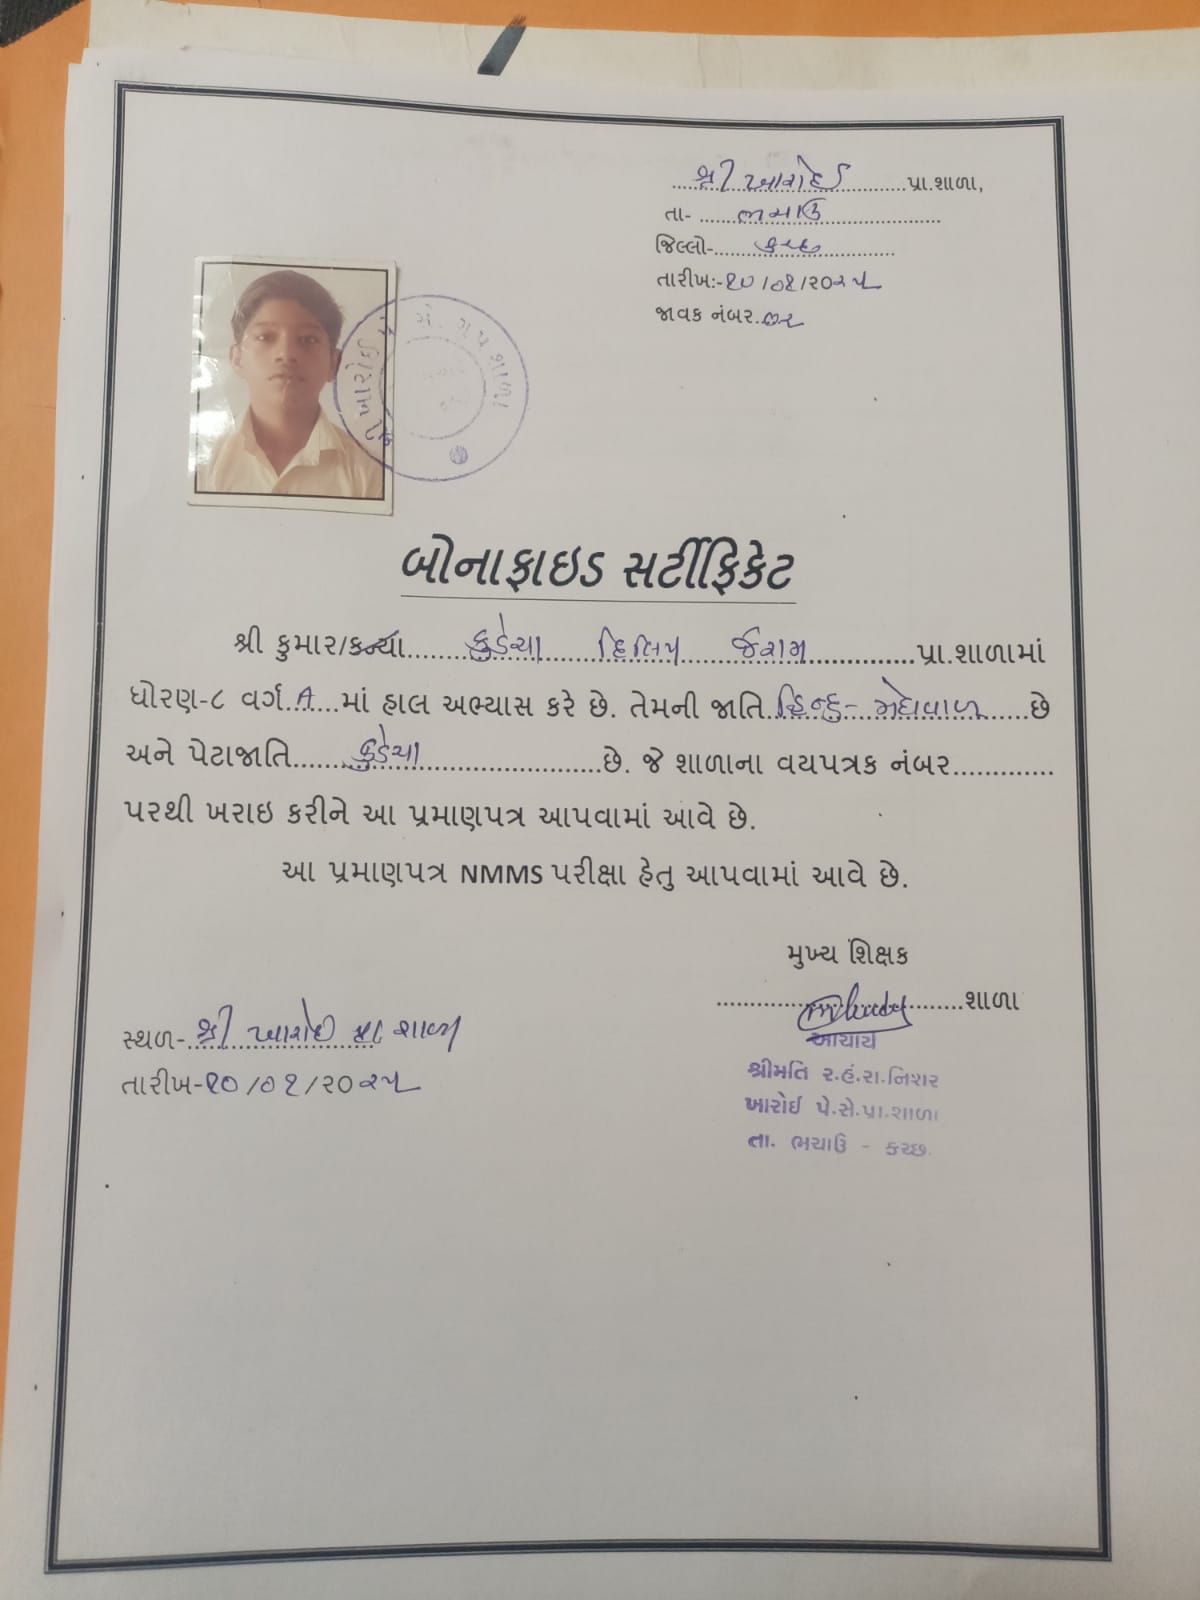 શ્રી ખારોઈ પ્રા.શાળા,
તા- ભચાઉ
જિલ્લો- કચ્છ
તારીખ:-૧૦/૦૧/૨૦૨૫
જાવક નંબર.૭૨
ખારોઈ પે.સે. શાળા
બોનાફાઇડ સર્ટીફિકેટ
શ્રી કુમાર/કન્યા કુડેચા દિલિપ જેરામ પ્રા.શાળામાં
ધોરણ-૮ વર્ગ A માં હાલ અભ્યાસ કરે છે. તેમની જાતિ હિન્દુ- મેઘવાળ છે
અને પેટાજાતિ કુડેચા છે. જે શાળાના વયપત્રક નંબર
પરથી ખરાઇ કરીને આ પ્રમાણપત્ર આપવામાં આવે છે.
આ પ્રમાણપત્ર NMMS પરીક્ષા હેતુ આપવામાં આવે છે.
મુખ્ય શિક્ષક
શાળા
આચાર્ય
શ્રીમતિ ર.હં.રા.નિશર
ખારોઈ પે.સે.પ્રા.શાળા
તા. ભચાઉ - કચ્છ.
સ્થળ- શ્રી ખારોઈ પ્રા શાળા
તારીખ-૧૦/૦૧/૨૦૨૫